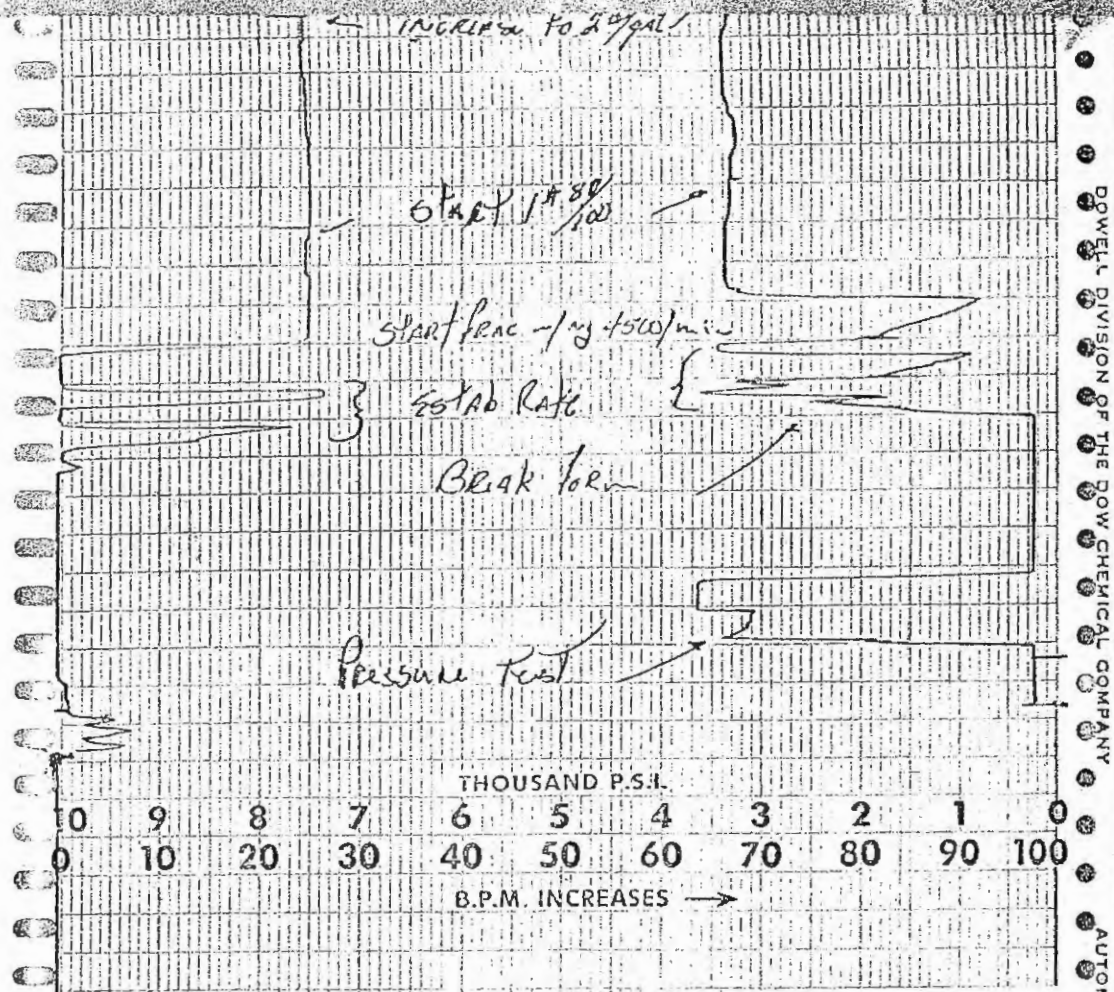 INCREASE to 2#/gal
START 1# 80/100
START FRAC
ESTAB RATE
BREAK FORM
PRESSURE TEST
THOUSAND P.S.I.
10 9 8 7 6 5 4 3 2 1 0
0 10 20 30 40 50 60 70 80 90 100
B.P.M. INCREASES →
DOWELL DIVISION OF THE DOW CHEMICAL COMPANY